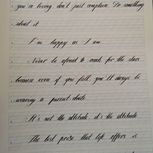 you're living don't just complain. Do something
about it
I'm happy as I am
Never be afraid to reach for the stars
because even if you fall, you'll always be
wearing a parent chute.
It's not the altitude, it's the attitude
The best prize that life offers is